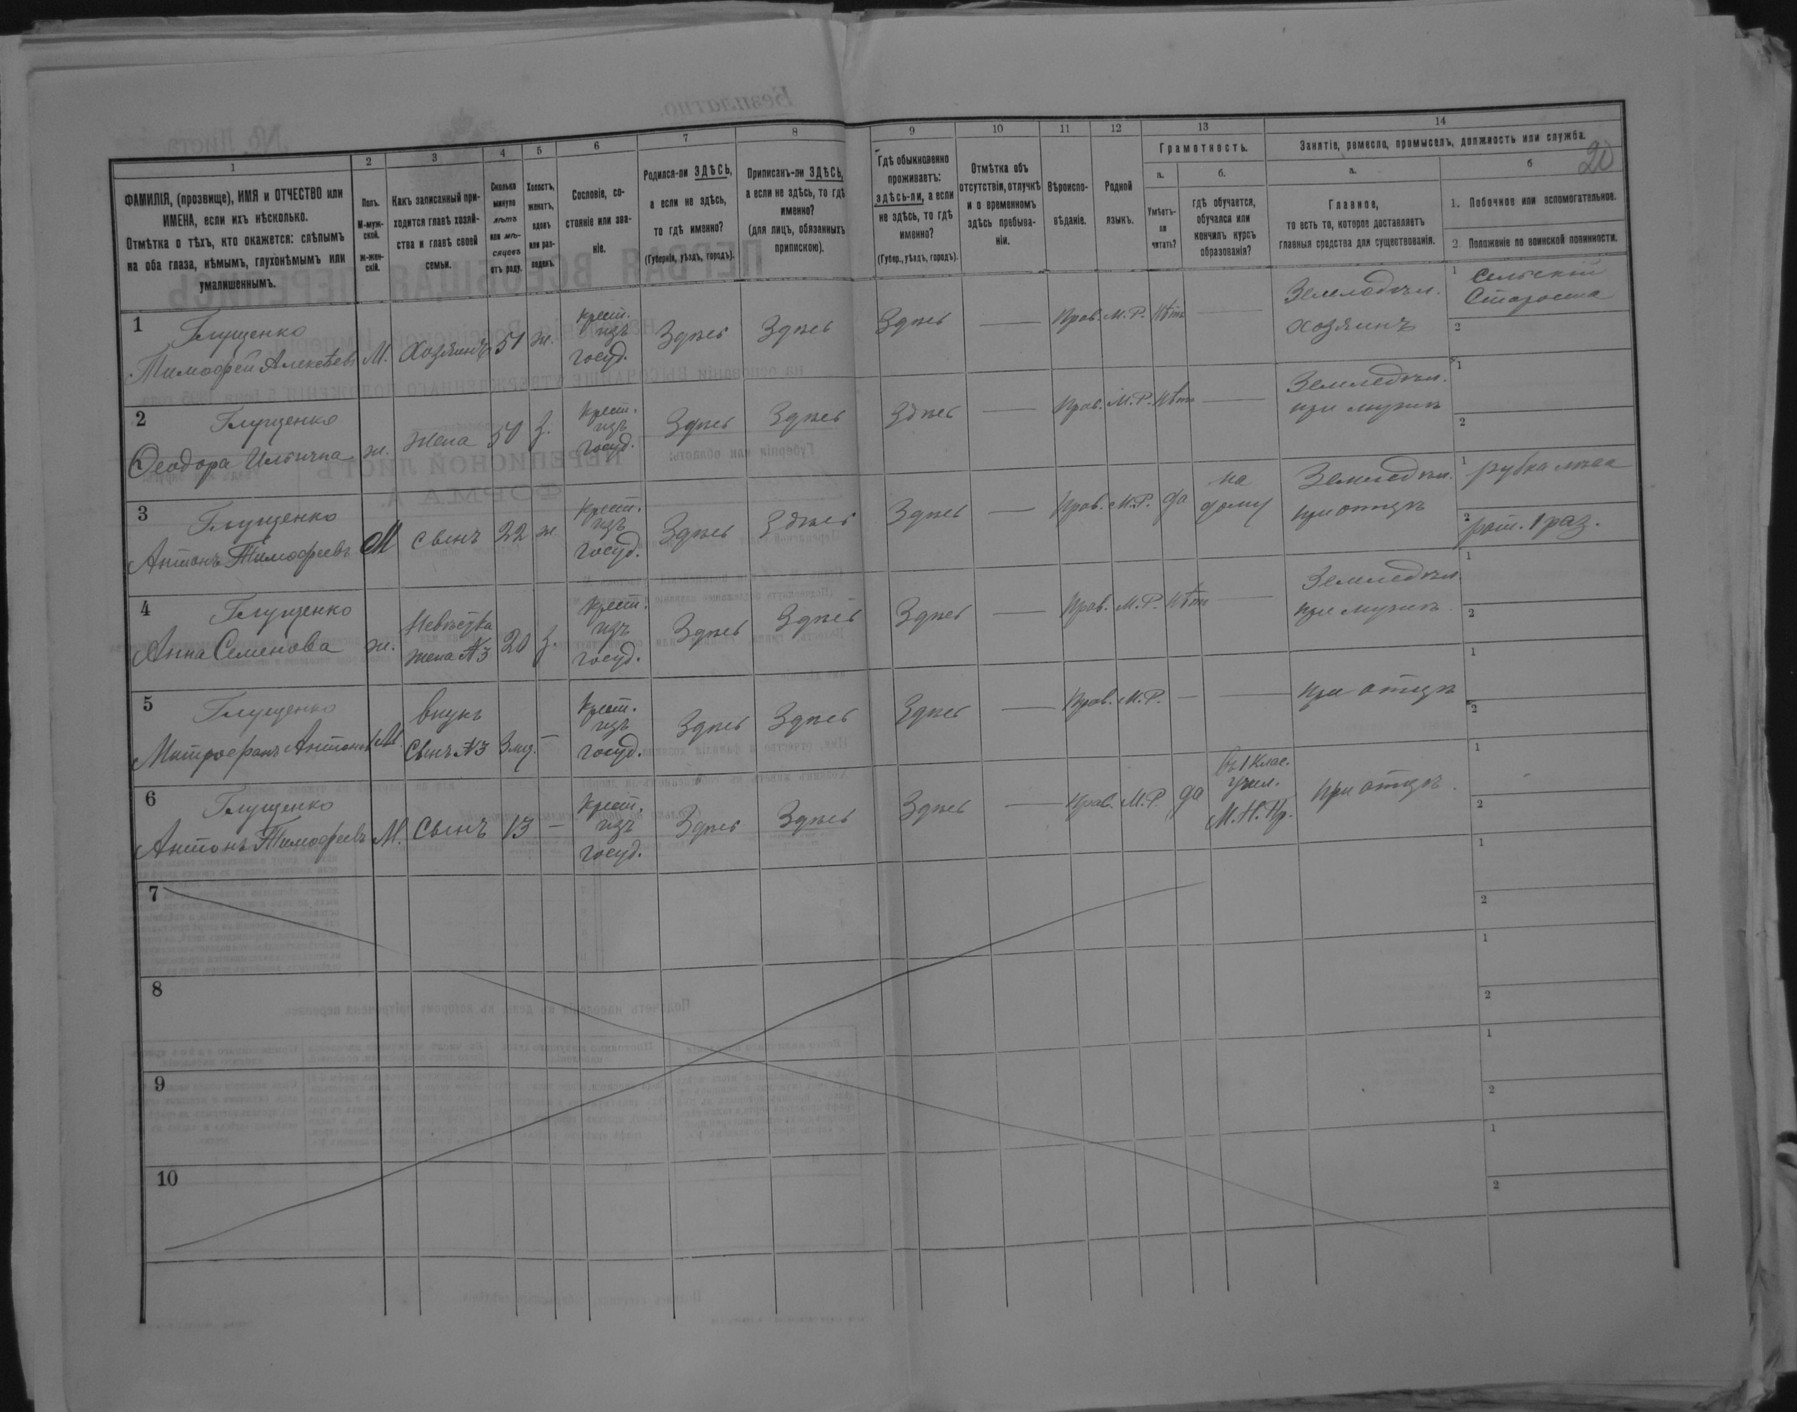 20
1 2 3 4 5 6 7 8 9 10 11 12 13 14
ФАМИЛІЯ, (прозвище), ИМЯ и ОТЧЕСТВО или
ИМЕНА, если ихъ нѣсколько.
Отмѣтка о тѣхъ, кто окажется: слѣпымъ
на оба глаза, нѣмымъ, глухонѣмымъ или
умалишеннымъ.
Полъ.
М-муж-
ской.
ж-жен-
скій.
Какъ записанный при-
ходится главѣ хозяй-
ства и главѣ своей
семьи.
Сколько
минуло
лѣтъ
или мѣ-
сяцевъ
отъ роду.
Холостъ,
женатъ,
вдовъ
или раз-
веденъ.
Сословіе, со-
стояніе или зва-
ніе.
Родился-ли ЗДѢСЬ,
а если не здѣсь,
то гдѣ именно?
(Губернія, уѣздъ, городъ).
Приписанъ-ли ЗДѢСЬ,
а если не здѣсь, то гдѣ
именно?
(для лицъ, обязанныхъ
припискою).
Гдѣ обыкновенно
проживаетъ:
здѣсь-ли, а если
не здѣсь, то гдѣ
именно?
(Губер., уѣздъ, городъ).
Отмѣтка объ
отсутствіи, отлучкѣ
и о временномъ
здѣсь пребыва-
ніи.
Вѣроиспо-
вѣданіе.
Родной
языкъ.
Грамотность.
а.
Умѣетъ-
ли
читать?
б.
гдѣ обучается,
обучался или
кончилъ курсъ
образованія?
Занятіе, ремесло, промыселъ, должность или служба.
а.
Главное,
то есть то, которое доставляетъ
главныя средства для существованія.
б
1. Побочное или вспомогательное.
2 Положеніе по воинской повинности.
1
Глущенко
Тимофей Алексѣевъ М. Хозяинъ 51 ж. Крест. изъ госуд. Здѣсь Здѣсь Здѣсь — Прав. М.Р. Нѣтъ — Земледѣл. хозяинъ
1 Сельскій
Староста
2
2
Глущенко
Ѳеодора Ильична ж. жена 50 з. Крест. изъ госуд. Здѣсь Здѣсь Здѣсь — Прав. М.Р. Нѣтъ — Земледѣл. при мужѣ
1
2
3
Глущенко
Антонъ Тимофеевъ М сынъ 22 ж Крест. изъ госуд. Здѣсь Здѣсь Здѣсь — Прав. М.Р. да на дому Земледѣл. при отцѣ
1 рубка лѣса
2 рат. 1 раз.
4
Глущенко
Анна Семенова ж. Невѣстка жена №3 20 з. Крест. изъ госуд. Здѣсь Здѣсь Здѣсь — Прав. М.Р. Нѣт — Земледѣл. при мужѣ
1
2
5
Глущенко
Митрофанъ Антоновъ М. внукъ сынъ №3 3 мѣс. — Крест. изъ госуд. Здѣсь Здѣсь Здѣсь — Прав. М.Р. — — при отцѣ
1
2
6
Глущенко
Антонъ Тимофеевъ М. Сынъ 13 — Крест. изъ госуд. Здѣсь Здѣсь Здѣсь — Прав. М.Р. да въ 1 клас. учил. М.Н.Пр. при отцѣ
1
2
7
1
2
8
1
2
9
1
2
10
1
2